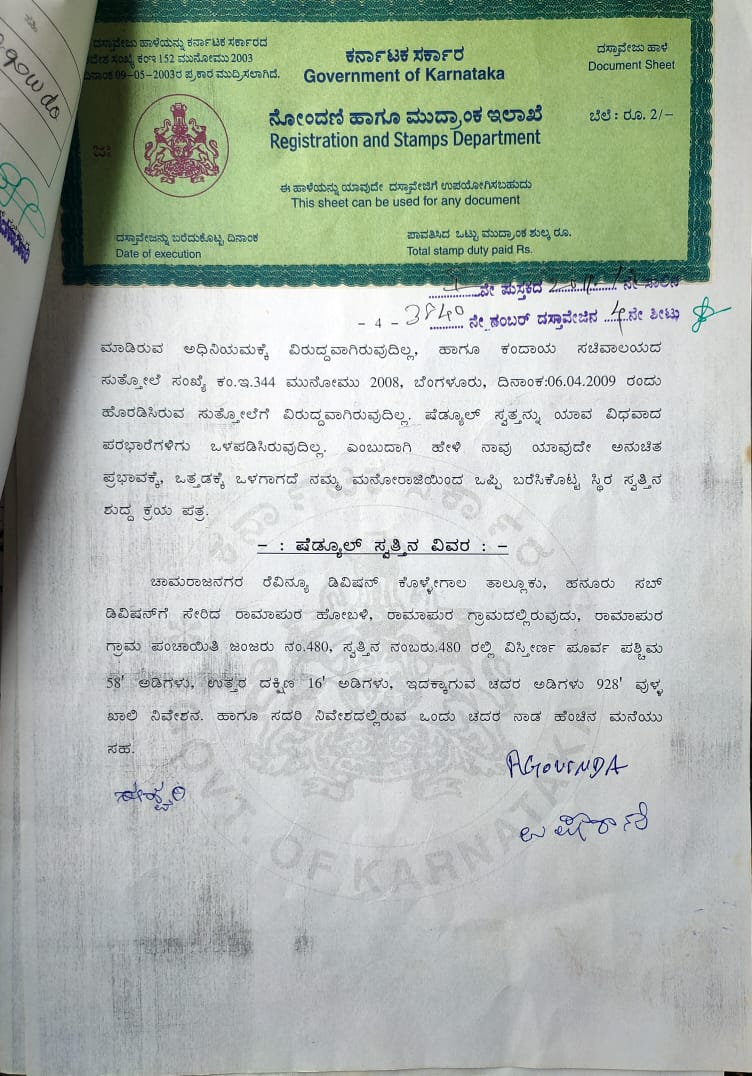 ದಸ್ತಾವೇಜು ಹಾಳೆಯನ್ನು ಕರ್ನಾಟಕ ಸರ್ಕಾರದ
ಸಂಖ್ಯೆ ಕಂಇ 152 ಮುನೋಮು 2003
ದಿನಾಂಕ 09-05-2003ರ ಪ್ರಕಾರ ಮುದ್ರಿಸಲಾಗಿದೆ.
ಕರ್ನಾಟಕ ಸರ್ಕಾರ
Government of Karnataka
ದಸ್ತಾವೇಜು ಹಾಳೆ
Document Sheet
ನೋಂದಣಿ ಹಾಗೂ ಮುದ್ರಾಂಕ ಇಲಾಖೆ
Registration and Stamps Department
ಬೆಲೆ : ರೂ. 2/-
ಈ ಹಾಳೆಯನ್ನು ಯಾವುದೇ ದಸ್ತಾವೇಜಿಗೆ ಉಪಯೋಗಿಸಬಹುದು
This sheet can be used for any document
ದಸ್ತಾವೇಜನ್ನು ಬರೆದುಕೊಟ್ಟ ದಿನಾಂಕ
Date of execution
ಪಾವತಿಸಿದ ಒಟ್ಟು ಮುದ್ರಾಂಕ ಶುಲ್ಕ ರೂ.
Total stamp duty paid Rs.
ನೇ ಪುಸ್ತಕದ ನೇ ಸಾಲಿನ
- 4 - ನೇ ನಂಬರ್ ದಸ್ತಾವೇಜಿನ 4 ನೇ ಶೀಟು
ಮಾಡಿರುವ ಅಧಿನಿಯಮಕ್ಕೆ ವಿರುದ್ದವಾಗಿರುವುದಿಲ್ಲ, ಹಾಗೂ ಕಂದಾಯ ಸಚಿವಾಲಯದ
ಸುತ್ತೋಲೆ ಸಂಖ್ಯೆ ಕಂ.ಇ.344 ಮುನೋಮು 2008, ಬೆಂಗಳೂರು, ದಿನಾಂಕ:06.04.2009 ರಂದು
ಹೊರಡಿಸಿರುವ ಸುತ್ತೋಲೆಗೆ ವಿರುದ್ದವಾಗಿರುವುದಿಲ್ಲ. ಷೆಡ್ಯೂಲ್ ಸ್ವತ್ತನ್ನು ಯಾವ ವಿಧವಾದ
ಪರಭಾರೆಗಳಿಗು ಒಳಪಡಿಸಿರುವುದಿಲ್ಲ. ಎಂಬುದಾಗಿ ಹೇಳಿ ನಾವು ಯಾವುದೇ ಅನುಚಿತ
ಪ್ರಭಾವಕ್ಕೆ, ಒತ್ತಡಕ್ಕೆ ಒಳಗಾಗದೆ ನಮ್ಮ ಮನೋರಾಜಿಯಿಂದ ಒಪ್ಪಿ ಬರೆಸಿಕೊಟ್ಟ ಸ್ಥಿರ ಸ್ವತ್ತಿನ
ಶುದ್ದ ಕ್ರಯ ಪತ್ರ.
- : ಷೆಡ್ಯೂಲ್ ಸ್ವತ್ತಿನ ವಿವರ : -
ಚಾಮರಾಜನಗರ ರೆವಿನ್ಯೂ ಡಿವಿಷನ್ ಕೊಳ್ಳೇಗಾಲ ತಾಲ್ಲೂಕು, ಹನೂರು ಸಬ್
ಡಿವಿಷನ್‌ಗೆ ಸೇರಿದ ರಾಮಾಪುರ ಹೋಬಳಿ, ರಾಮಾಪುರ ಗ್ರಾಮದಲ್ಲಿರುವುದು, ರಾಮಾಪುರ
ಗ್ರಾಮ ಪಂಚಾಯಿತಿ ಜಂಜರು ನಂ.480, ಸ್ವತ್ತಿನ ನಂಬರು.480 ರಲ್ಲಿ ವಿಸ್ತೀರ್ಣ ಪೂರ್ವ ಪಶ್ಚಿಮ
58' ಅಡಿಗಳು, ಉತ್ತರ ದಕ್ಷಿಣ 16' ಅಡಿಗಳು, ಇದಕ್ಕಾಗುವ ಚದರ ಅಡಿಗಳು 928' ವುಳ್ಳ
ಖಾಲಿ ನಿವೇಶನ. ಹಾಗೂ ಸದರಿ ನಿವೇಶದಲ್ಲಿರುವ ಒಂದು ಚದರ ನಾಡ ಹೆಂಚಿನ ಮನೆಯು
ಸಹ.
AGOVINDA
ಕರ್ನಾಟಕ ಸರ್ಕಾರ
GOVT. OF KARNATAKA